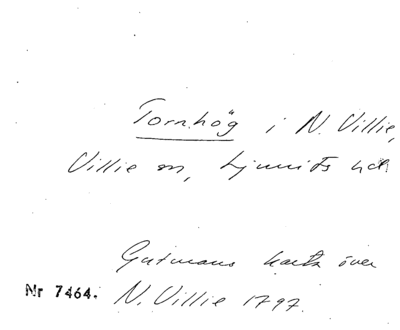 Tornhög i N. Villie,
Villie sn, Ljunits hd.
Gutmans karta över
Nr 7464. N. Villie 1797.